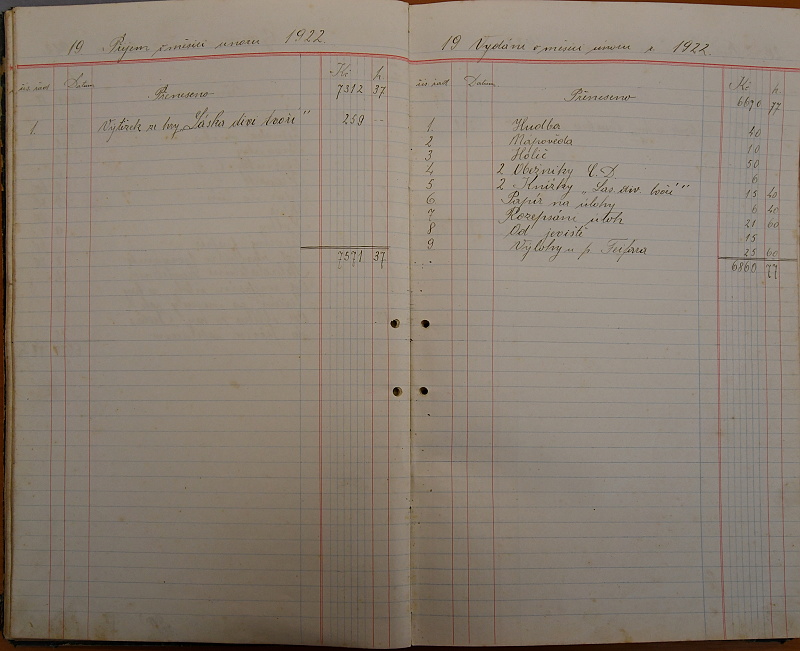 19 Příjem v měsíci unoru 1922.
Kč h
čís. řad. Datum
Přeneseno 7312 37
1. Výtěžek ze hry „Láska divy tvoří" 259 --
7571 37
19 Vydání v měsíci unoru r. 1922.
čís. řad. Datum Kč h
Přeneseno 6670 77
1 Hudba 40
2 Nápověda 10
3 Holič 50
4 2 Obězníky Č. D. 6
5 2 Knížky „Lás. div. tvoří" 15 20
6 Papír na úlohy 6 40
7 Rozepsání úloh 21 60
8 Od jeviště 15
9 Výlohy u p. 25 60
6860 77